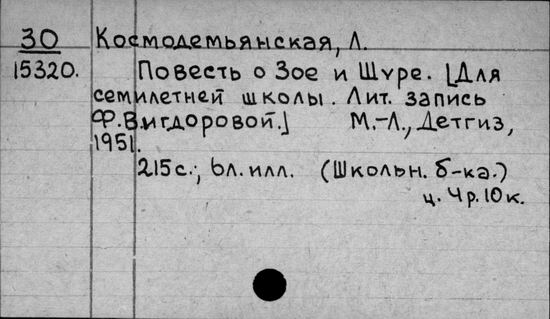 30 Космодемьянская, Л.
15320. Повесть о Зое и Шуре. [Для
семилетней школы. Лит. запись
Ф.Вигдоровой.] М.-Л., Детгиз,
1951.
215с.; 6л.илл. (Школьн. б-ка.)
ц. 4р.10к.